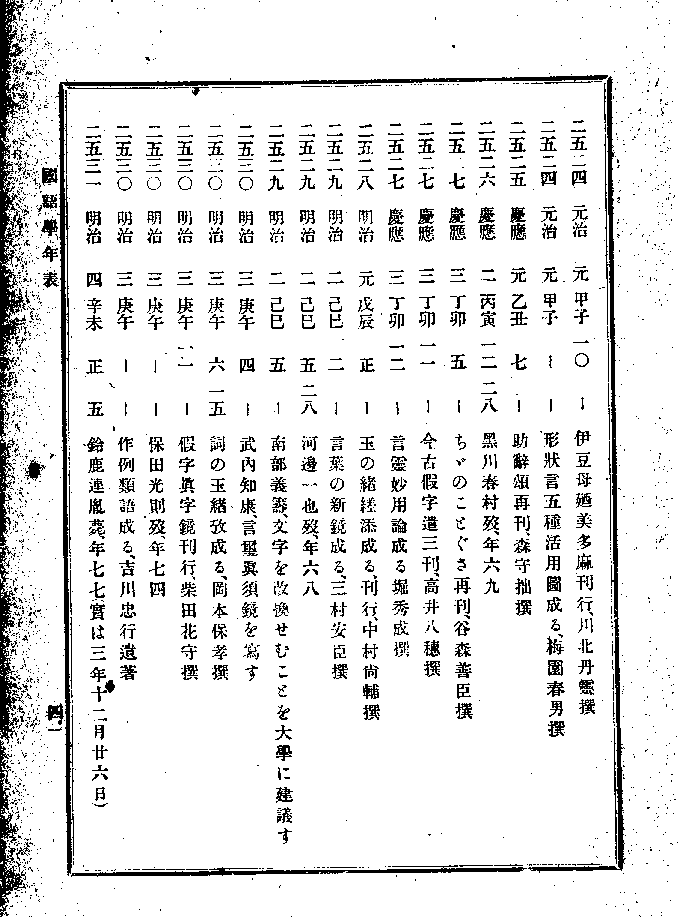 二五二四 元治 元 甲子 一〇 ー 伊豆母廼美多麻刊行、川北丹靈撰
二五二四 元治 元 甲子 ー ー 形狀言五種活用圖成る、梅園春男撰
二五二五 慶應 元 乙丑 七 ー 助辭頌再刊、森守拙撰
二五二六 慶應 二 丙寅 一二 二八 黑川春村歿、年六九
二五 七 慶應 三 丁卯 五 ー ちゞのことぐさ再刊、谷森善臣撰
二五二七 慶應 三 丁卯 一一 ー 今古假字遣三刊、高井八穗撰
二五二七 慶應 三 丁卯 一二 ー 言靈妙用論成る、堀秀成撰
二五二八 明治 元 戊辰 正 ー 玉の緒繰添成る、刊行、中村尙輔撰
二五二九 明治 二 己巳 二 ー 言葉の新鏡成る、三村安臣撰
二五二九 明治 二 己巳 五 二八 河邊一也歿、年六八
二五二九 明治 二 己巳 五 ー 南部義籌、文字を改換せむことを大學に建議す
二五三〇 明治 三 庚午 四 ー 武內知康、言靈眞須鏡を寫す
二五三〇 明治 三 庚午 六 一五 詞の玉緖攷成る、岡本保孝撰
二五三〇 明治 三 庚午 一一 ー 假字眞字鏡刊行、柴田花守撰
二五三〇 明治 三 庚午 ー ー 保田光則歿、年七四
二五三〇 明治 三 庚午 ー ー 作例類語成る、吉川忠行遺著
二五三一 明治 四 辛未 正 五 鈴鹿連胤薨、年七七實は三年十二月廿六日)
國語學年表
四一